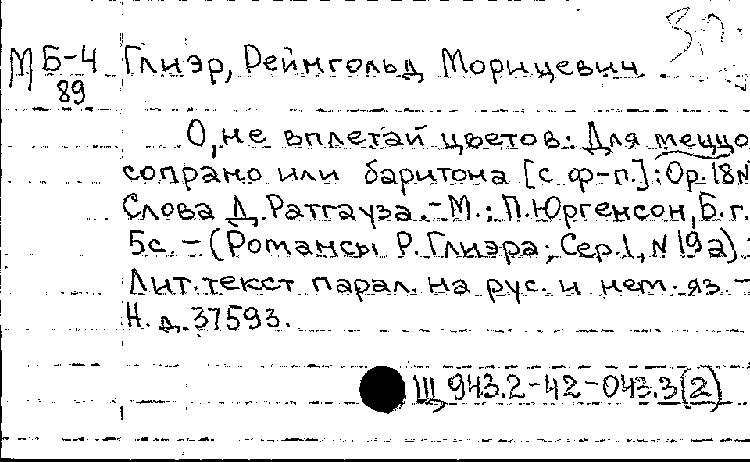 М Б-4 Глиэр, Рейнгольд Морицевич
89
О, не вплетай цветов: Для меццо
сопрано или баритона [с ф-п.]: Op. 18 N
Слова Д. Ратгауза. - М.: П. Юргенсон, Б. г.
5с. - (Романсы Р. Глиэра; Сер. 1, N 19а).
Лит. текст парал. на рус. и нем. яз. -
Н. д. 37593.
Щ 943.2-42-043.3(2)